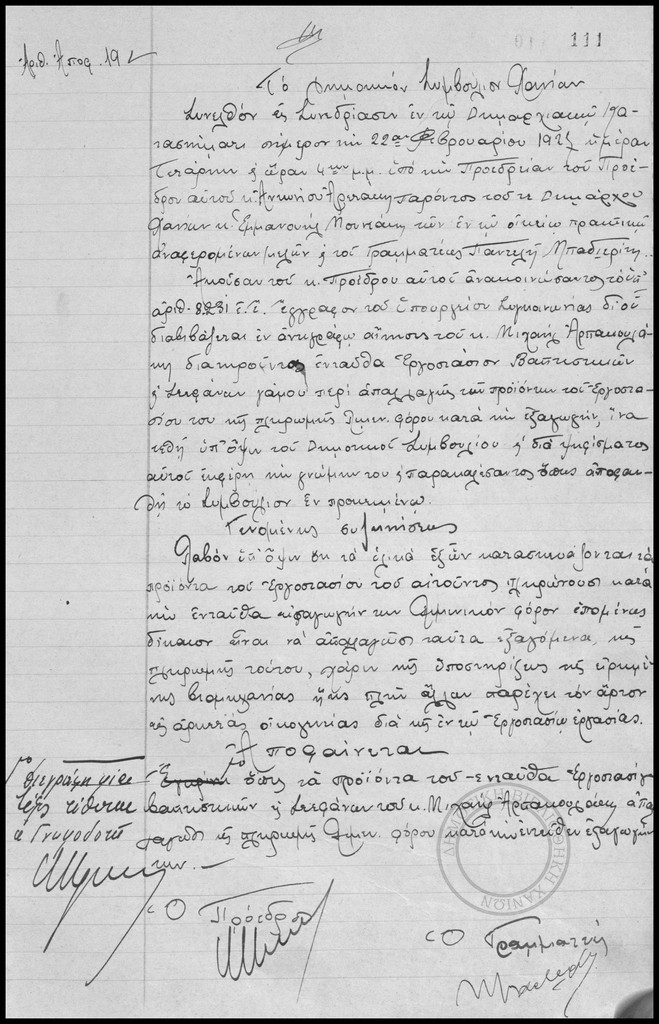 111
Αριθ. Αποφ. 19
Το Δημοτικόν Συμβούλιον Χανίων
Συνελθόν εις Συνεδρίασιν εν τω Δημαρχιακώ Κα-
ταστήματι σήμερον την 22αν Φεβρουαρίου 192 ημέραν
Τετάρτην & ώραν 4ην μ.μ. υπό την Προεδρείαν του Προέ-
δρου αυτού κ. Αντωνίου παρόντος του κ. Δημάρχου
Χανίων κ. Εμμανουήλ Μουντάκη των εν τω οικείω πρακτικώ
αναφερομένων μελών & του Γραμματέως Παντελή Μπαδιερίτη.
Ακούσαν του κ. Προέδρου αυτού ανακοινώσαντος το υπ'
αριθ. 8231 έ.έ. έγγραφον του Υπουργείου Συγκοινωνίας δι' ού
διαβιβάζεται εν αντιγράφω αίτησις του κ. Μιχαήλ Αρπακουλά-
κη διατηρούντος ενταύθα Εργοστάσιον Βαπτιστικών
& Στεφάνων γάμου περί απαλλαγής των προϊόντων του Εργοστα-
σίου του της πληρωμής Λιμεν. φόρου κατά την εξαγωγήν, ίνα
τεθή υπ' όψιν του Δημοτικού Συμβουλίου & διά ψηφίσματος
αυτού εκφέρη την γνώμην του & παρακαλέσαντος όπως αποφαν-
θή το Συμβούλιον εν προκειμένω.
Γενομένης συζητήσεως
Λαβόν υπ' όψιν ότι τα υλικά εξ ων κατασκευάζονται τα
προϊόντα του Εργοστασίου του αιτούντος πληρώνουσι κατά
την ενταύθα εισαγωγήν των Λιμενικόν φόρον επομένως
δίκαιον είναι να απαλλαγώσι ταύτα εξαγόμενα, της
πληρωμής τούτου, χάριν της υποστηρίξεως της ειρημέ-
νης βιομηχανίας ήτις πλην άλλων παρέχει τον άρτον
εις αρκετάς οικογενείας διά της εν τω Εργοστασίω εργασίας.
Αποφαίνεται
όπως τα προϊόντα του ενταύθα Εργοστασίου
βαπτιστικών & Στεφάνων του κ. Μιχαήλ Αρπακουλάκη απαλ-
λαγώσι της πληρωμής Λιμεν. φόρου κατά την εντεύθεν εξαγωγήν
των.
διεγράφη μία
λέξις τίθεται
Γνωμοδοτεί
Ο Πρόεδρος
Ο Γραμματεύς
ΔΗΜΟΤΙΚΗ ΒΙΒΛΙΟΘΗΚΗ ΧΑΝΙΩΝ